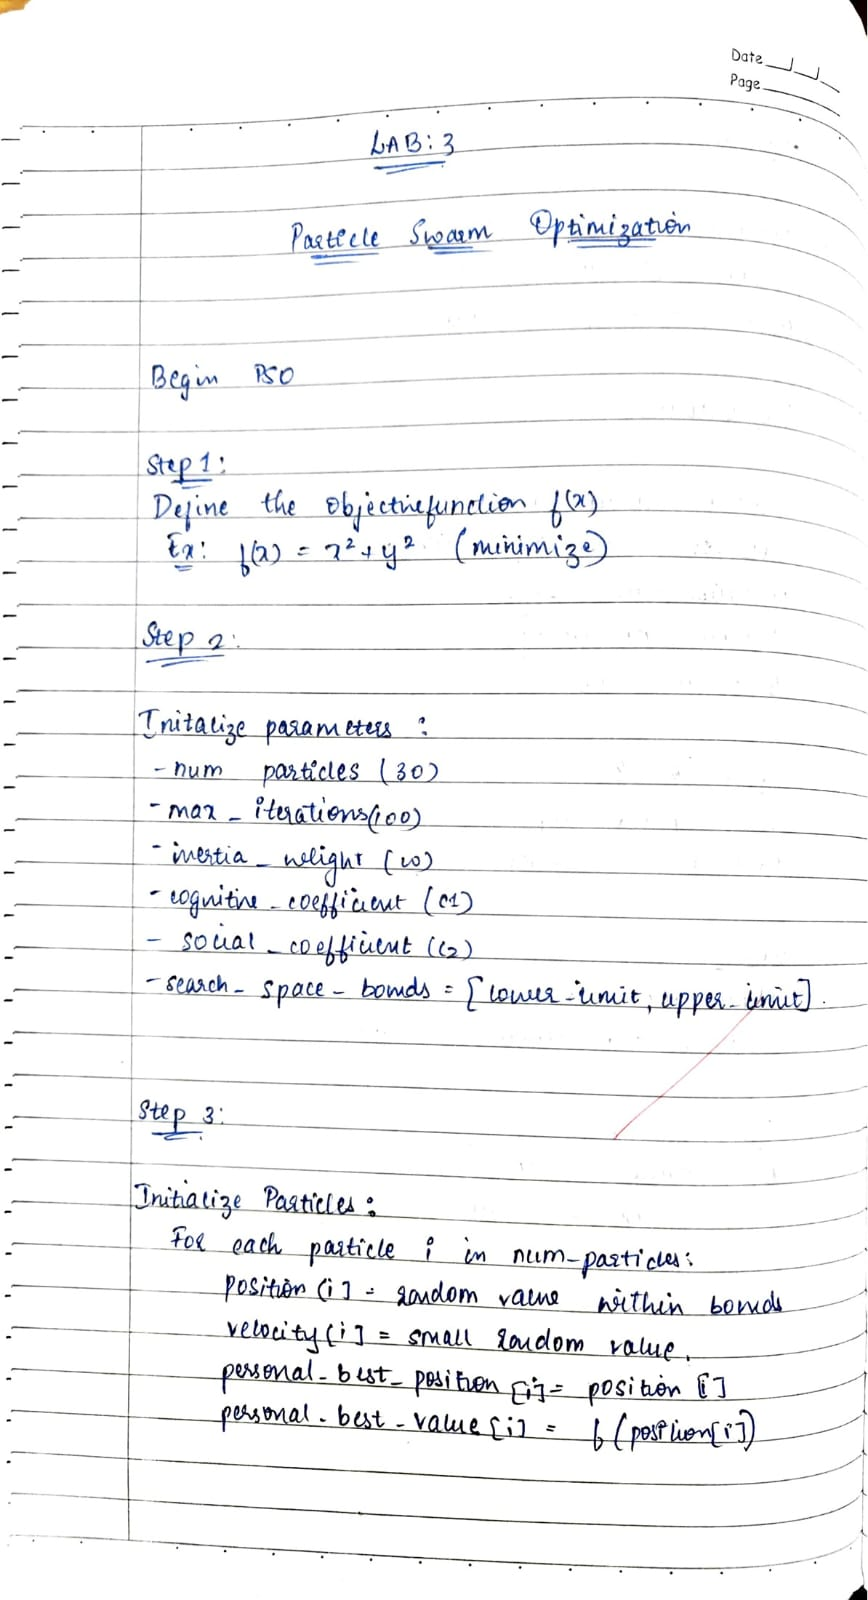 Date
Page
LAB: 3
Particle Swarm Optimization
Begin PSO
Step 1:
Define the Objective function f(x)
Ex: f(x) = x² + y² (minimize)
Step 2:
Initalize parameters :
- num particles (30)
- max _ iterations (100)
- inertia _ weight (w)
- cognitive - coefficient (c1)
- social _ coefficient (c2)
- search - space - bounds = [lower - limit, upper - limit].
Step 3:
Initialize Particles :
For each particle i in num-particles:
position [i] = random value within bounds
velocity [i] = small random value.
personal - best - position [i] = position [i]
personal - best - value [i] = f (position[i])